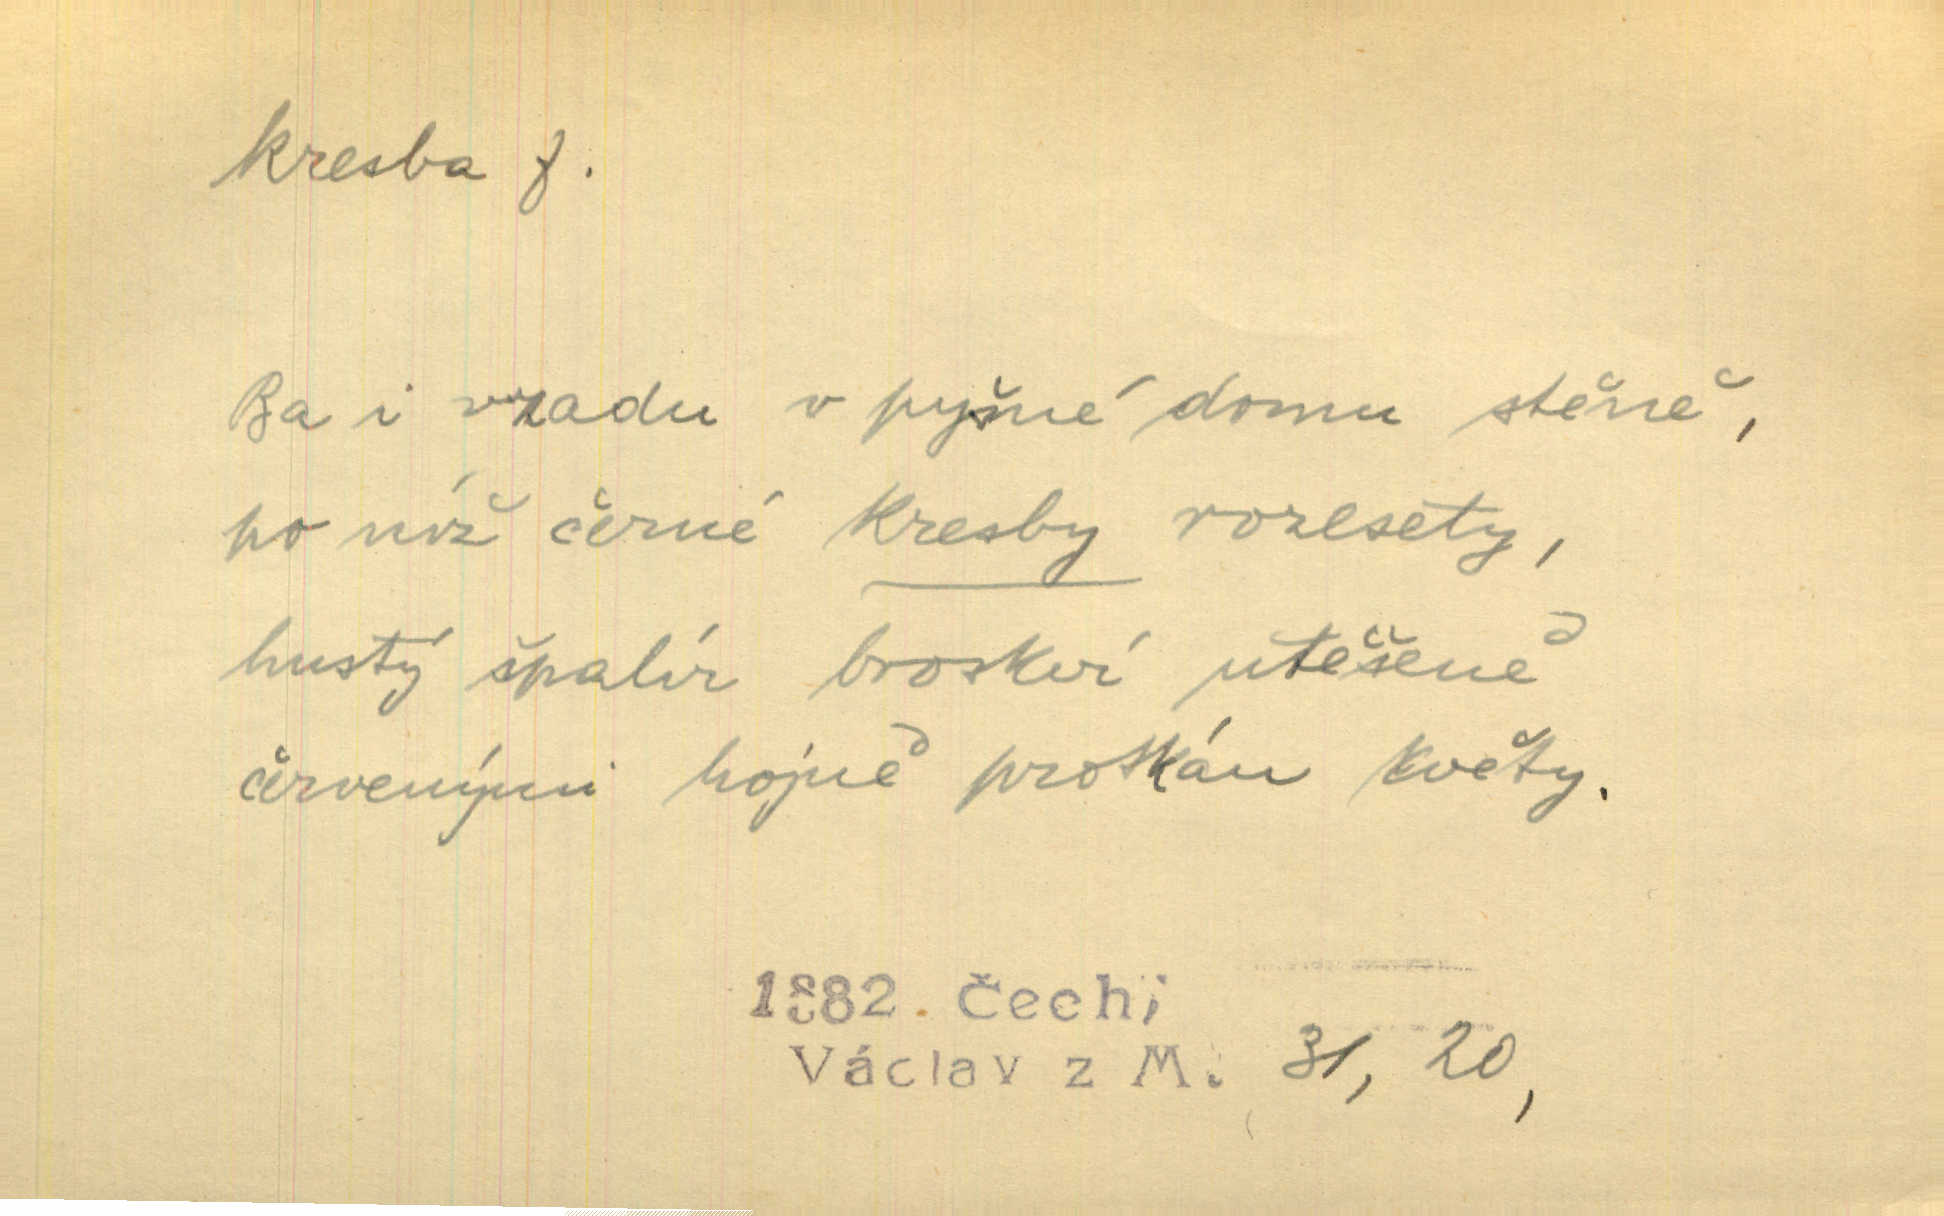 kresba f.
Ba i vzadu v pyšné domu stěně,
po níž černé kresby rozesety,
hustý špalír broskví utěšeně
červenými hojně protkán květy.
1882. Čech
Václav z M. 31, 20,